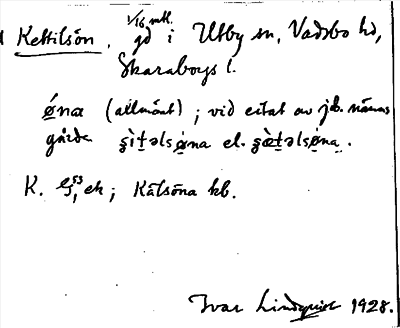 Kettilsön. 1/16 mtl. gd i Utby sn, Vadsbo hd,
Skaraborgs l.
ǿna (allmänt); vid citat av jb. nämns
gården ʂìt̠əlsǿna el. ʂæ̀t̠əlsǿna.
K. 53 ek; Kätsöna kb.
Ivar Lindquist 1928.